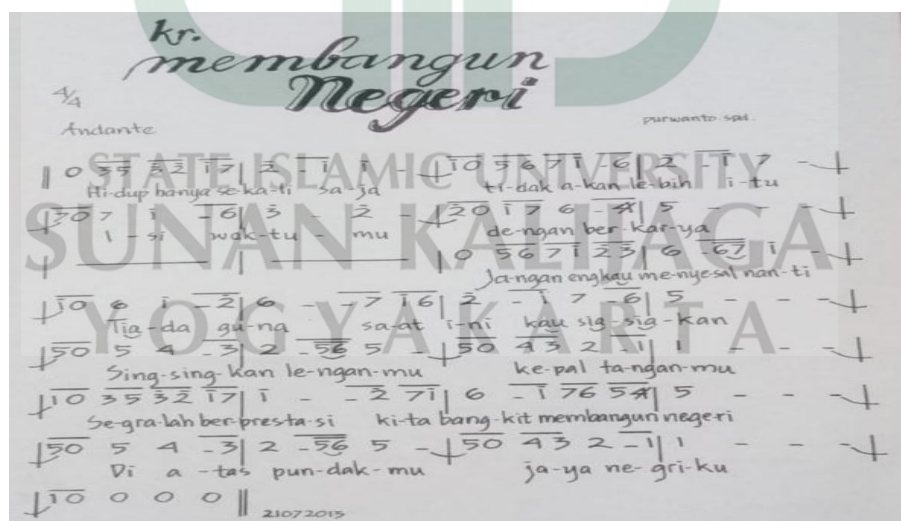 kr.
membangun
Negeri
4/4
Andante
purwanto spd.
STATE ISLAMIC UNIVERSITY
SUNAN KALIJAGA
YOGYAKARTA
|| 0 35 32 17 | 2 - 1 1 - | 10 5 6 7 1 - 6 | 2 - 1 7 - |
Hi-dup hanya se-ka-li sa-ja ti-dak a-kan le-bih i-tu
| 70 7 1 - 6 | 3 - 2 - | 20 1 7 6 - 4 | 5 - - - |
I - si wak-tu - mu de-ngan ber-kar-ya
| | | 0 5 6 7 1 2 3 | 6 - 67 1 - |
Ja-ngan engkau me-nye-sal nan-ti
| 10 6 1 - 2 | 6 - - 7 16 | 2 - 1 7 - 6 | 5 - - - |
Tia-da gu-na sa-at i-ni kau sia-sia-kan
| 50 5 4 - 3 | 2 - 56 5 - | 50 43 2 - 1 | 1 - - - |
Sing-sing-kan le-ngan-mu ke-pal ta-ngan-mu
| 10 35 32 17 | 1 - - 2 71 | 6 - 1 76 54 | 5 - - - |
Se-gra-lah ber-presta-si ki-ta bang-kit membangun negeri
| 50 5 4 - 3 | 2 - 56 5 - | 50 43 2 - 1 | 1 - - - |
Di a - tas pun-dak-mu ja-ya ne-gri-ku
| 10 0 0 0 ||
21072015